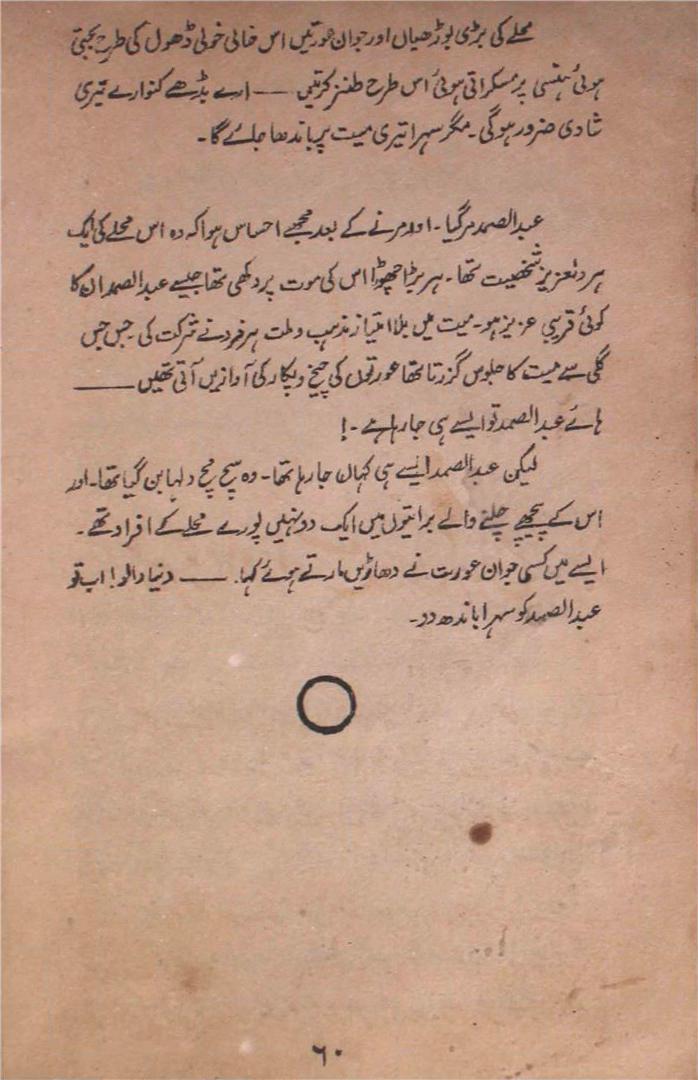 محلے کی بڑی بوڑھیاں اور جوان عورتیں اس خالی خولی ڈھول کی طرح بجتی
ہوئی ہنسی پر مسکراتی ہوئی اس طرح طنز کرتیں —— ارے بڈھے کنوارے تیری
شادی ضرور ہوگی۔ مگر سہرا تیری میت پر باندھا جائے گا۔
عبدالصمد مر گیا۔ اور مرنے کے بعد مجھے احساس ہوا کہ وہ اس محلے کی ایک
ہر دلعزیز شخصیت تھا۔ ہر بڑا چھوٹا اس کی موت پر دکھی تھا جیسے عبدالصمد ان کا
کوئی قریبی عزیز ہو۔ میت میں بلا امتیاز مذہب و ملت ہر فرد نے شرکت کی۔ جس جس
گلی سے میت کا جلوس گزرتا تھا عورتوں کی چیخ و پکار کی آوازیں آتی تھیں ——
ہائے عبدالصمد تو ایسے ہی جا رہا ہے۔!
لیکن عبدالصمد ایسے ہی کہاں جا رہا تھا۔ وہ سچ مچ دلہا بن گیا تھا۔ اور
اس کے پیچھے چلنے والے براتیوں میں ایک دو نہیں پورے محلے کے افراد تھے۔
ایسے میں کسی جوان عورت نے دھاڑیں مارتے ہوئے کہا۔ —— دنیا والو! اب تو
عبدالصمد کو سہرا باندھ دو۔
۶۰